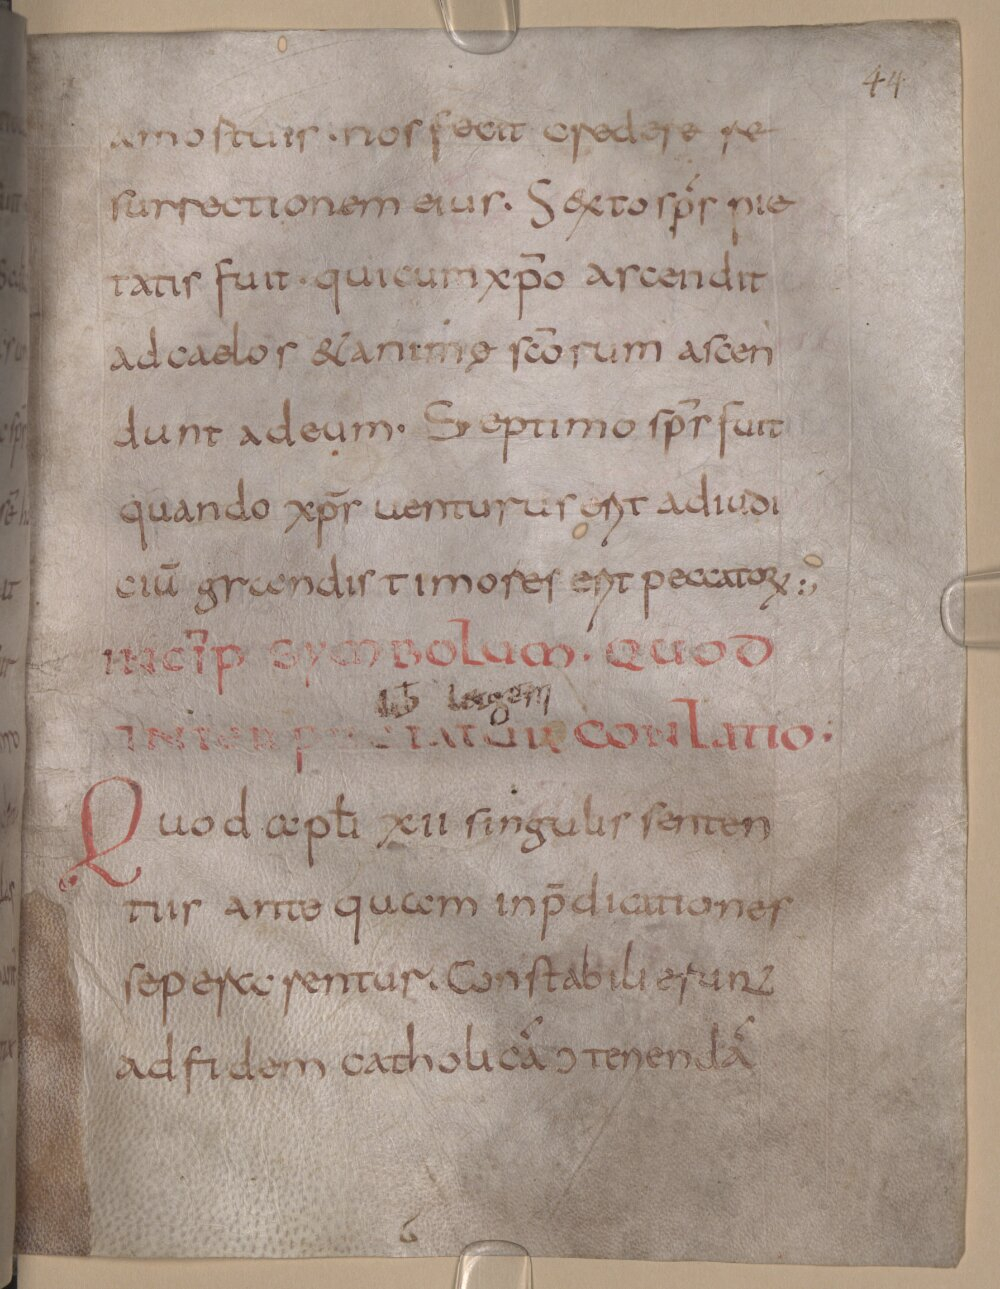 44
amortuis · nos fecit credere re
surrectionem eius. Sexto sp̄s pie
tatis fuit · qui cum xp̄o ascendit
ad caelos & anime sc̄orum ascen
dunt adeum. Septimo sp̄s fuit
quando xp̄s uenturus est adiudi
ciū grandis timores est peccatoꝝ:
INCIP̄ SYMBOLUM. QUOD
legem
INTERPRETATUR CONLATIO.
Quod apłi xii singulis senten
tiis ante quam inp̄dicationes
seperarentur. Constabilierunt
ad fidem catholicā ɔtenendā
6